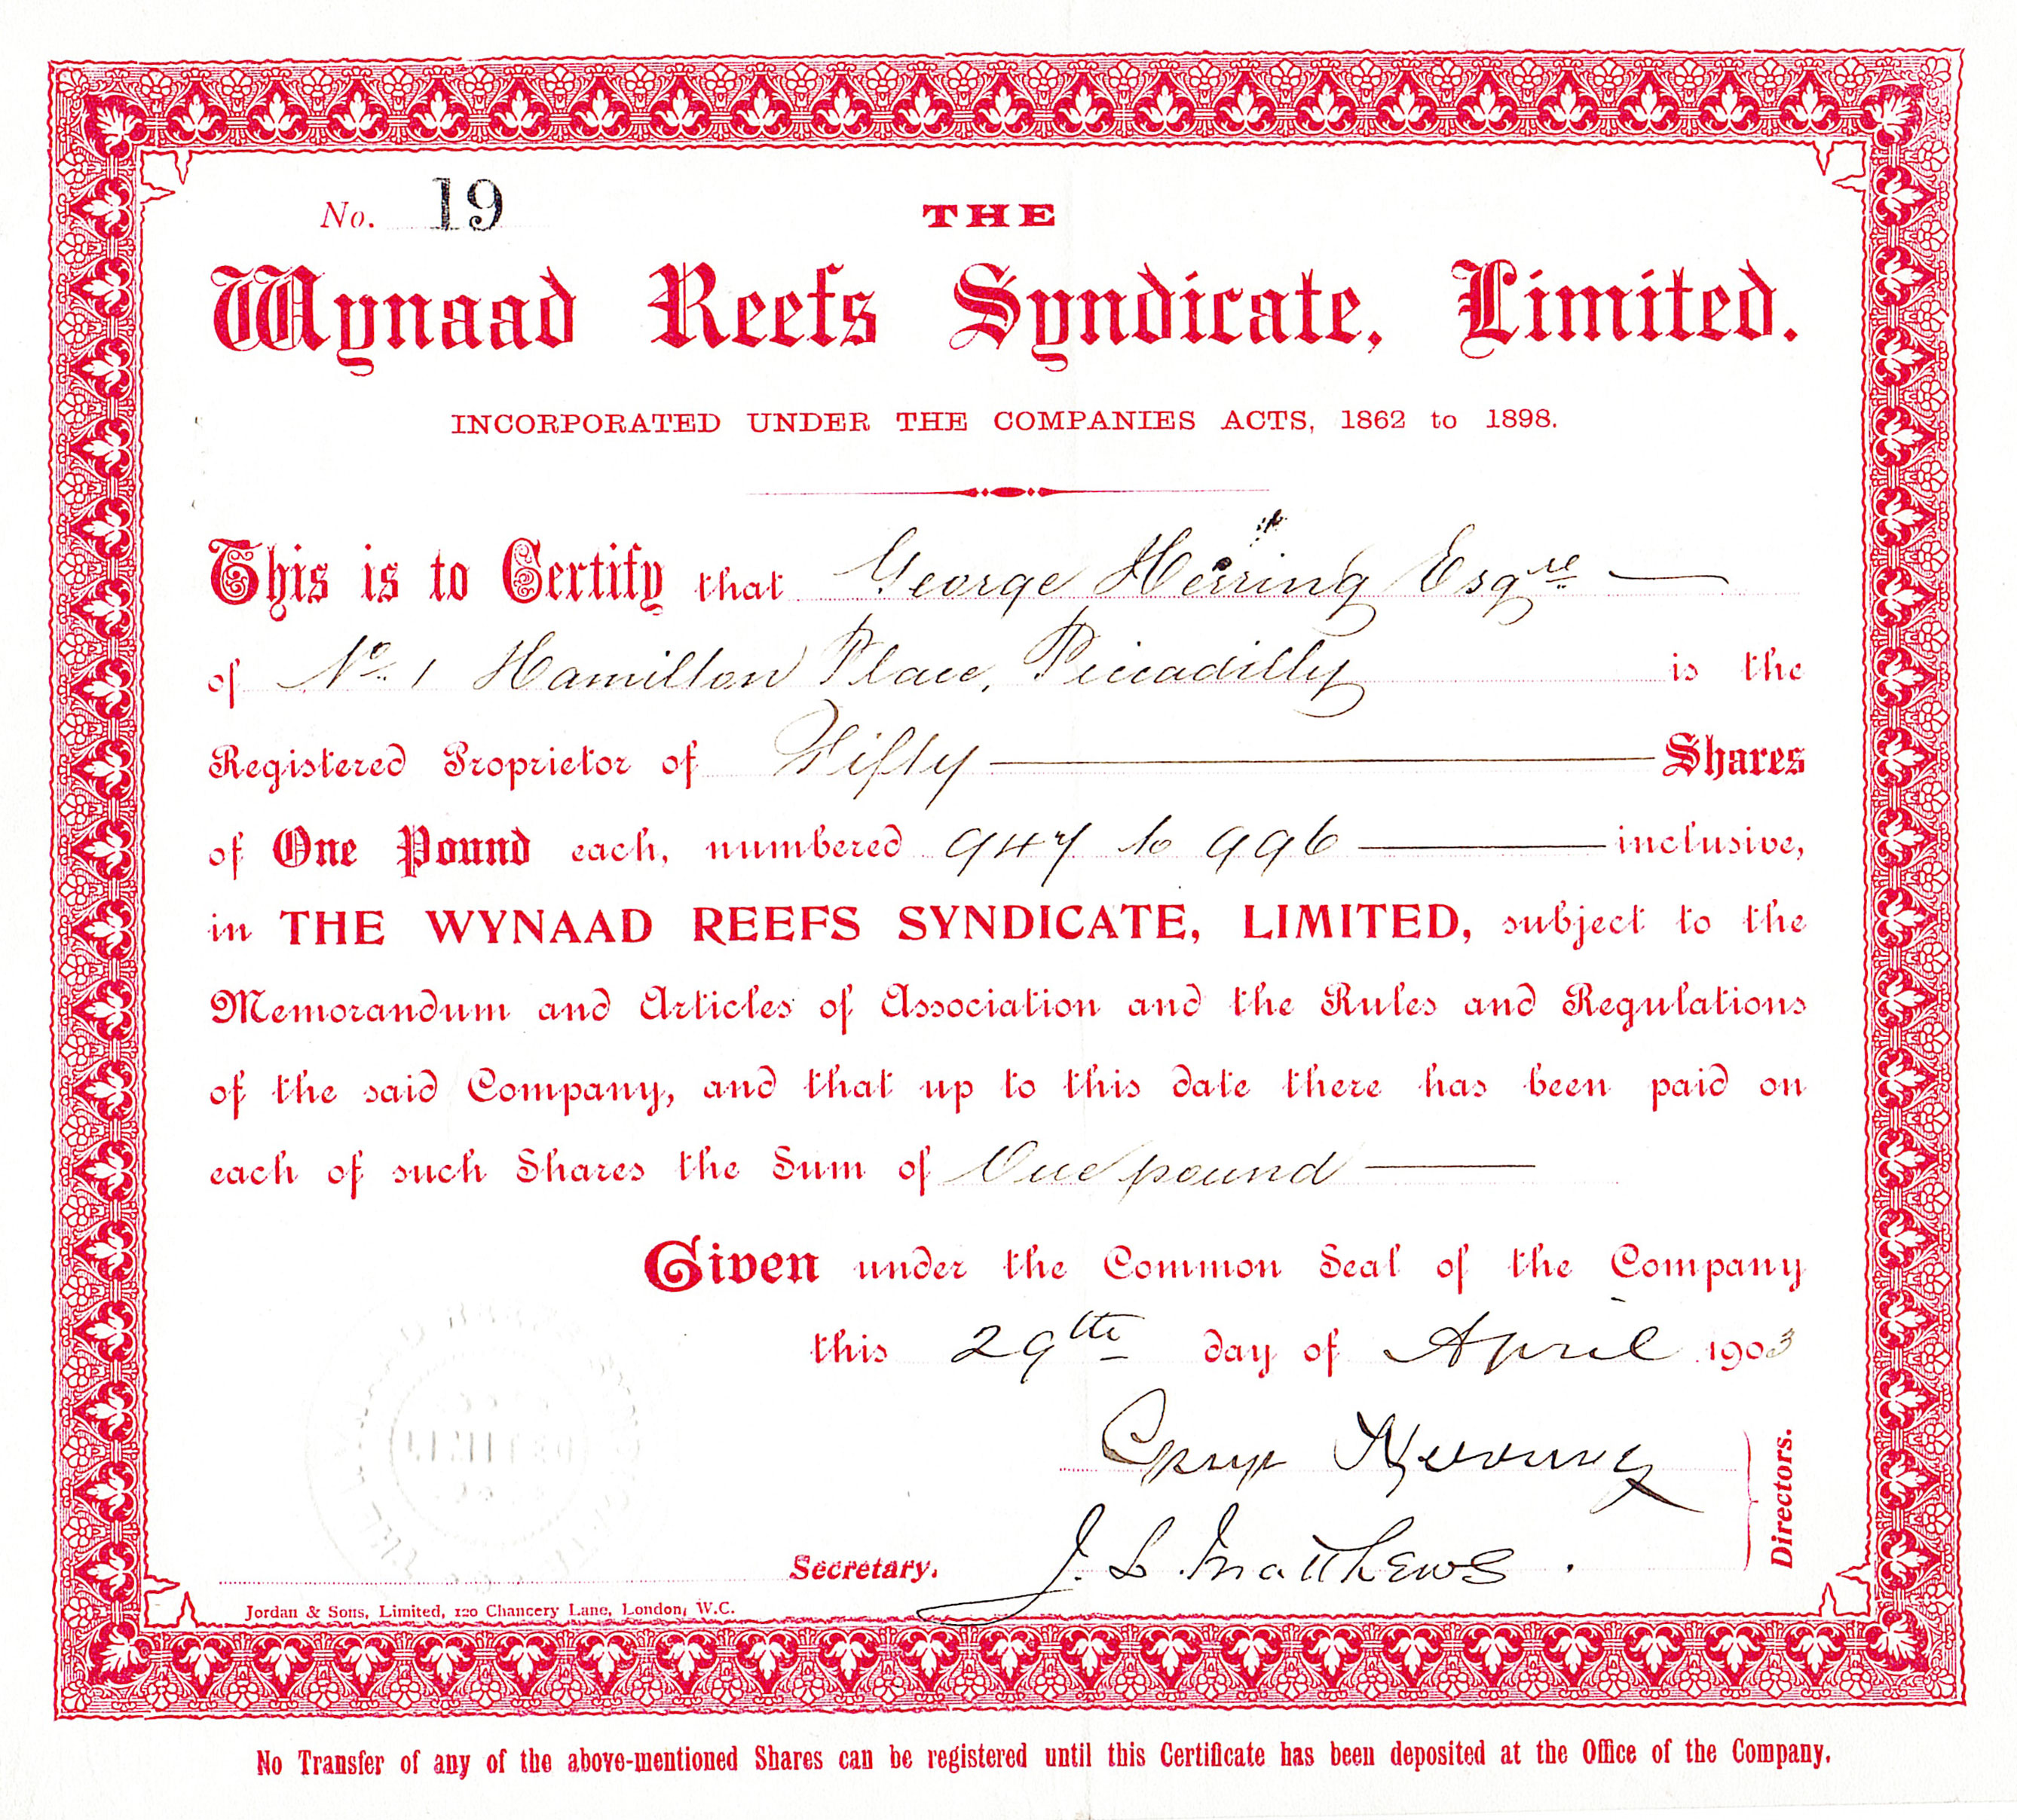 No. 19
THE
Wynaad Reefs Syndicate, Limited.
INCORPORATED UNDER THE COMPANIES ACTS, 1862 to 1898.
This is to Certify that George Herring Esqre
of No. 1 Hamilton Place, Piccadilly is the
Registered Proprietor of Fifty Shares
of One Pound each, numbered 947 to 996 inclusive,
in THE WYNAAD REEFS SYNDICATE, LIMITED, subject to the
Memorandum and Articles of Association and the Rules and Regulations
of the said Company, and that up to this date there has been paid on
each of such Shares the Sum of One pound
Given under the Common Seal of the Company
this 29th day of April 1903
George Herring
Directors.
J. L. Matthews.
Secretary.
Jordan & Sons, Limited, 120 Chancery Lane, London, W.C.
No Transfer of any of the above-mentioned Shares can be registered until this Certificate has been deposited at the Office of the Company.